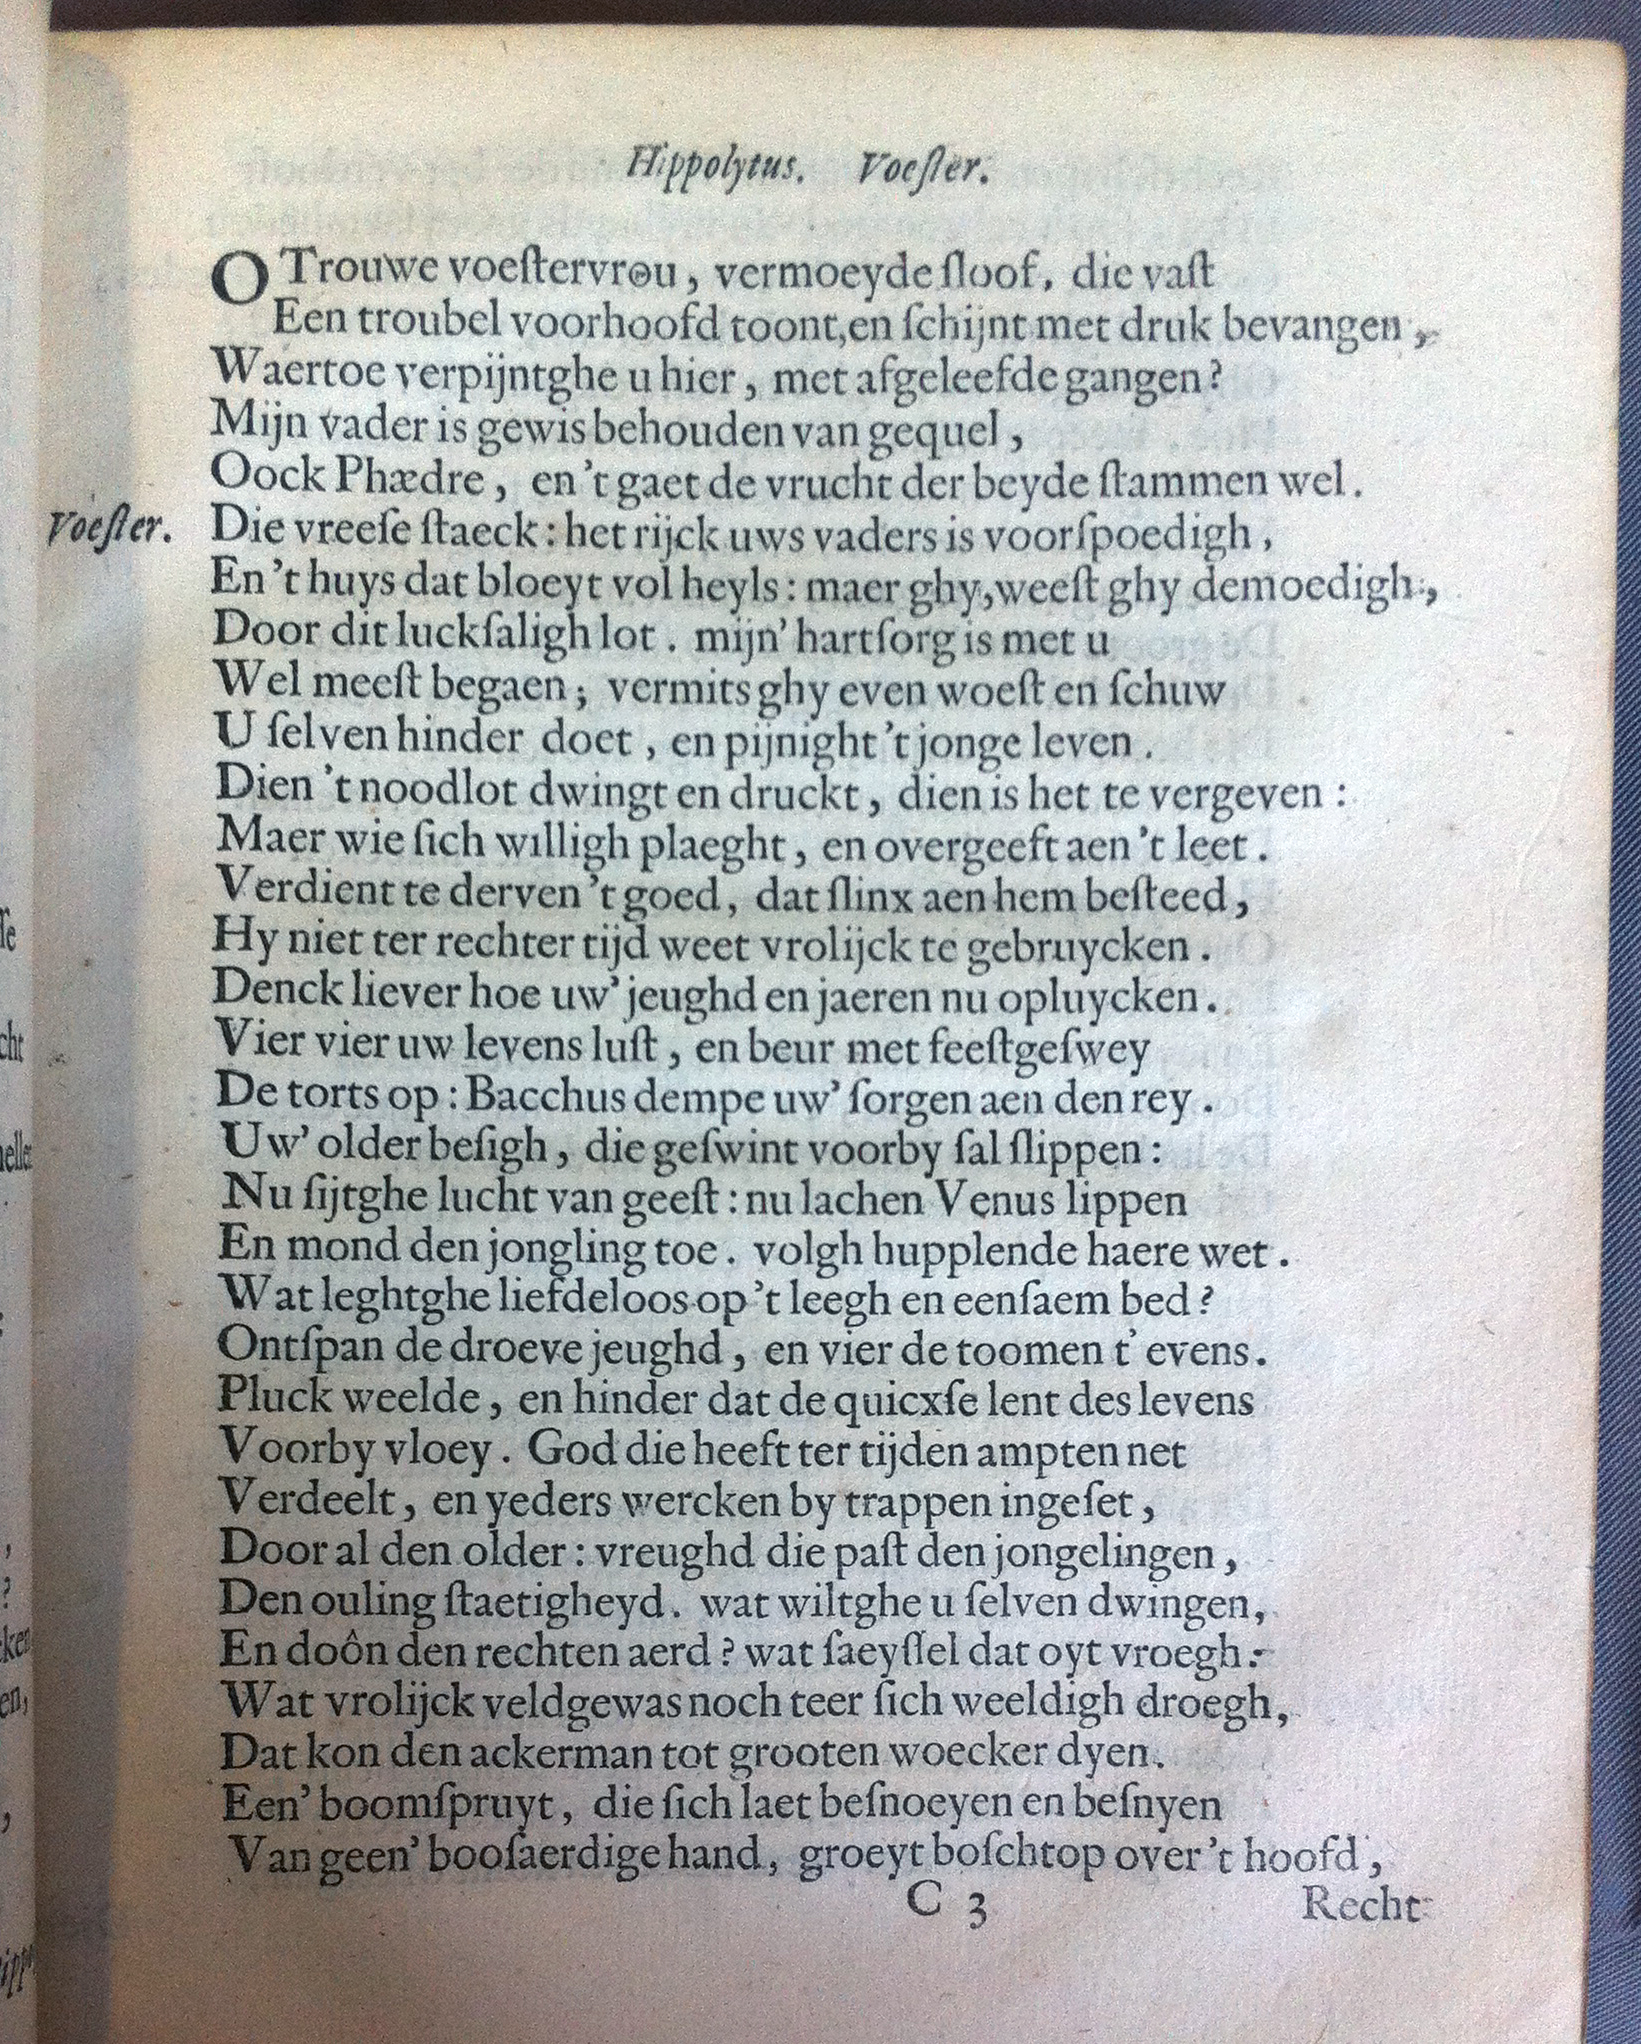 Hippolytus. Voeſter.
O Trouwe voeſtervrou, vermoeyde ſloof, die vaſt
Een troubel voorhoofd toont, en ſchijnt met druk bevangen,
Waertoe verpijntghe u hier, met afgeleefde gangen?
Mijn vader is gewis behouden van gequel,
Oock Phædre, en 't gaet de vrucht der beyde ſtammen wel.
Voeſter. Die vreeſe ſtaeck: het rijck uws vaders is voorſpoedigh,
En 't huys dat bloeyt vol heyls: maer ghy, weeſt ghy demoedigh,
Door dit luckſaligh lot. mijn' hartſorg is met u
Wel meeſt begaen; vermits ghy even woeſt en ſchuw
U ſelven hinder doet, en pijnight 't jonge leven.
Dien 't noodlot dwingt en druckt, dien is het te vergeven:
Maer wie ſich willigh plaeght, en overgeeft aen 't leet.
Verdient te derven 't goed, dat ſlinx aen hem beſteed,
Hy niet ter rechter tijd weet vrolijck te gebruycken.
Denck liever hoe uw' jeughd en jaeren nu opluycken.
Vier vier uw levens luſt, en beur met feeſtgeſwey
De torts op: Bacchus dempe uw' ſorgen aen den rey.
Uw' older beſigh, die geſwint voorby ſal ſlippen:
Nu ſijtghe lucht van geeſt: nu lachen Venus lippen
En mond den jongling toe. volgh hupplende haere wet.
Wat leghtghe liefdeloos op 't leegh en eenſaem bed?
Ontſpan de droeve jeughd, en vier de toomen t' evens.
Pluck weelde, en hinder dat de quicxſe lent des levens
Voorby vloey. God die heeft ter tijden ampten net
Verdeelt, en yeders wercken by trappen ingeſet,
Door al den older: vreughd die paſt den jongelingen,
Den ouling ſtaetigheyd. wat wiltghe u ſelven dwingen,
En doôn den rechten aerd? wat ſaeyſſel dat oyt vroegh:
Wat vrolijck veldgewas noch teer ſich weeldigh droegh,
Dat kon den ackerman tot grooten woecker dyen.
Een' boomſpruyt, die ſich laet beſnoeyen en beſnyen
Van geen' booſaerdige hand, groeyt boſchtop over 't hoofd,
C 3 Recht